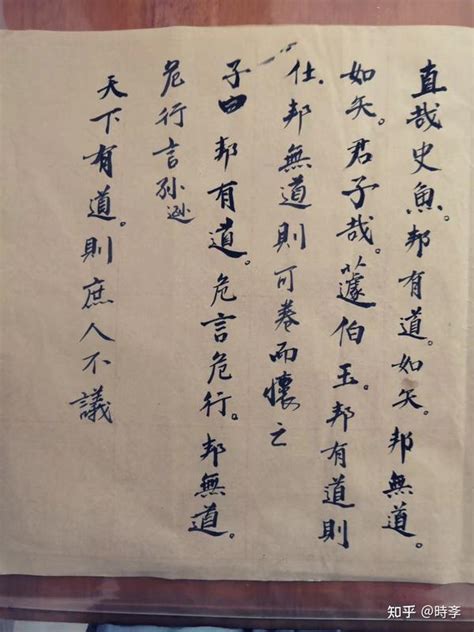 直哉史魚。邦有道。如矢。邦無道。
如矢。君子哉。蘧伯玉。邦有道則
仕。邦無道則可卷而懷之
子曰邦有道。危言危行。邦無道。
危行言孙逊
天下有道。則庶人不議
知乎 @時李